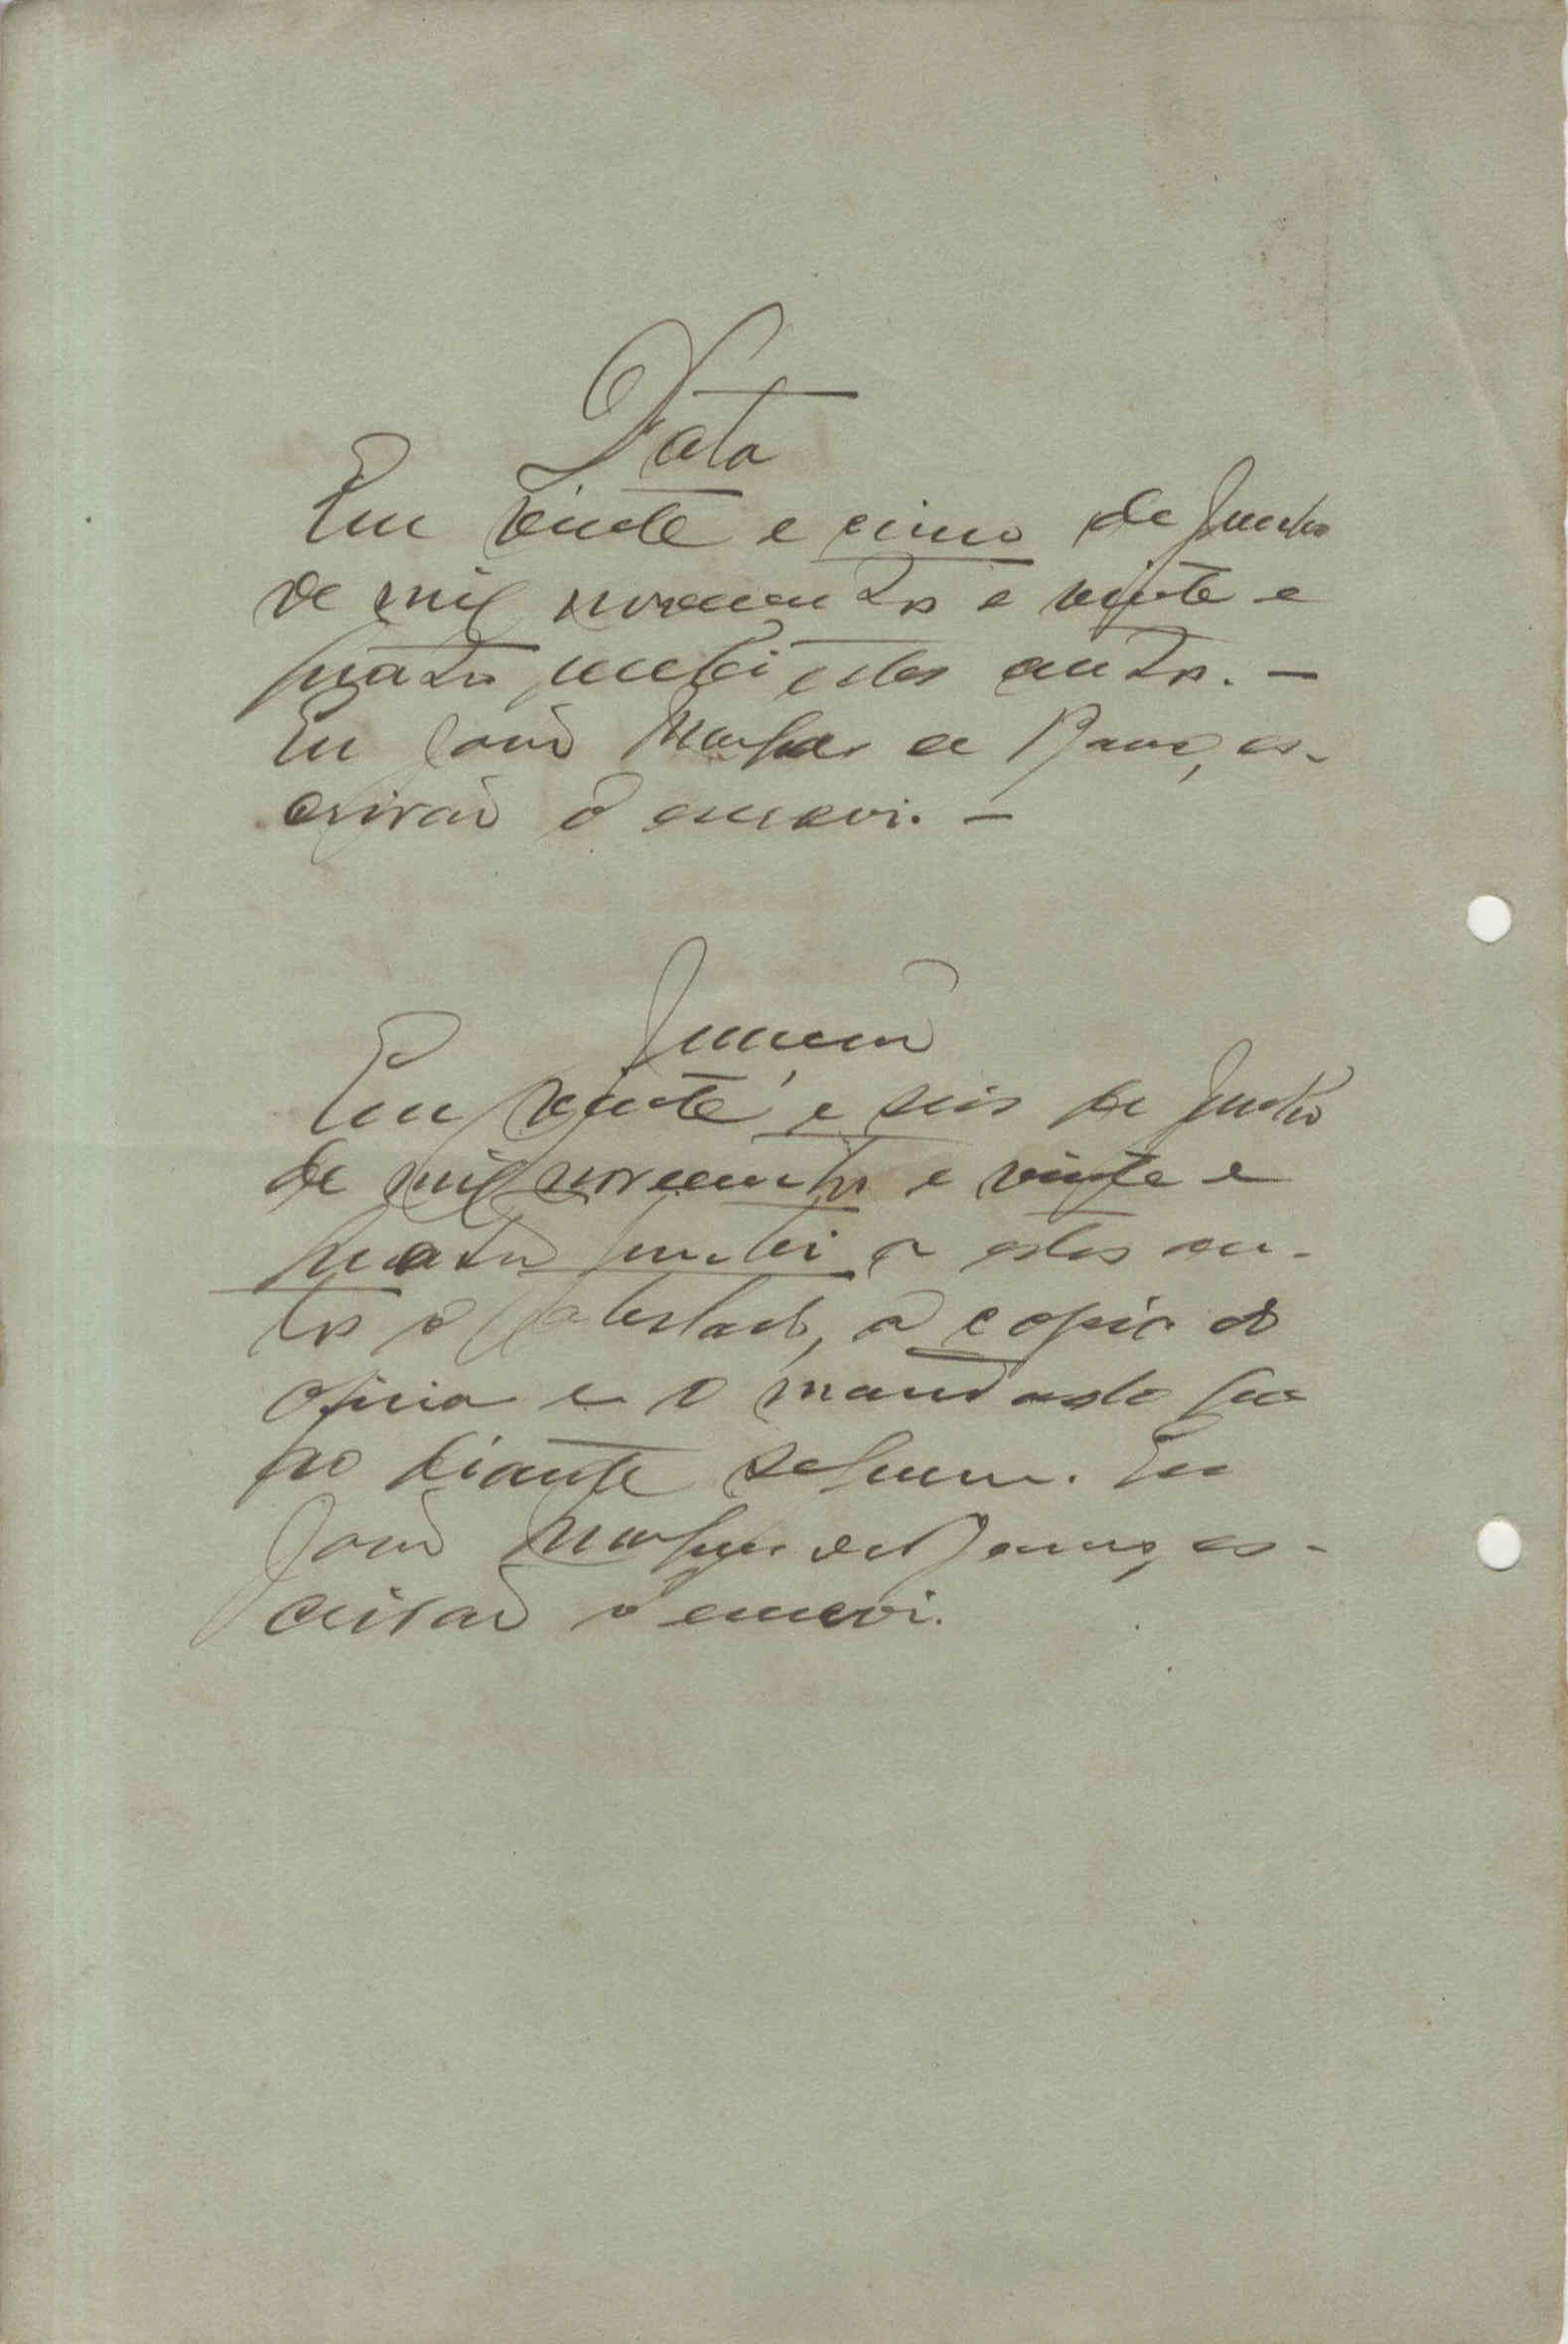 Data
Em vinte e cinco de Junho
de mil novecentos e vinte e
quatro recebi estes autos. —
Eu João Marques de, es-
crivão o escrevi. —
Juncção
Em vinte e seis de Junho
de mil novecentos e vinte e
quatro juntei a estes au-
tos o attestado, a copia do
officio e o mandado que
ao diante seguem. Eu
João Marques de, es-
crivão o escrevi.